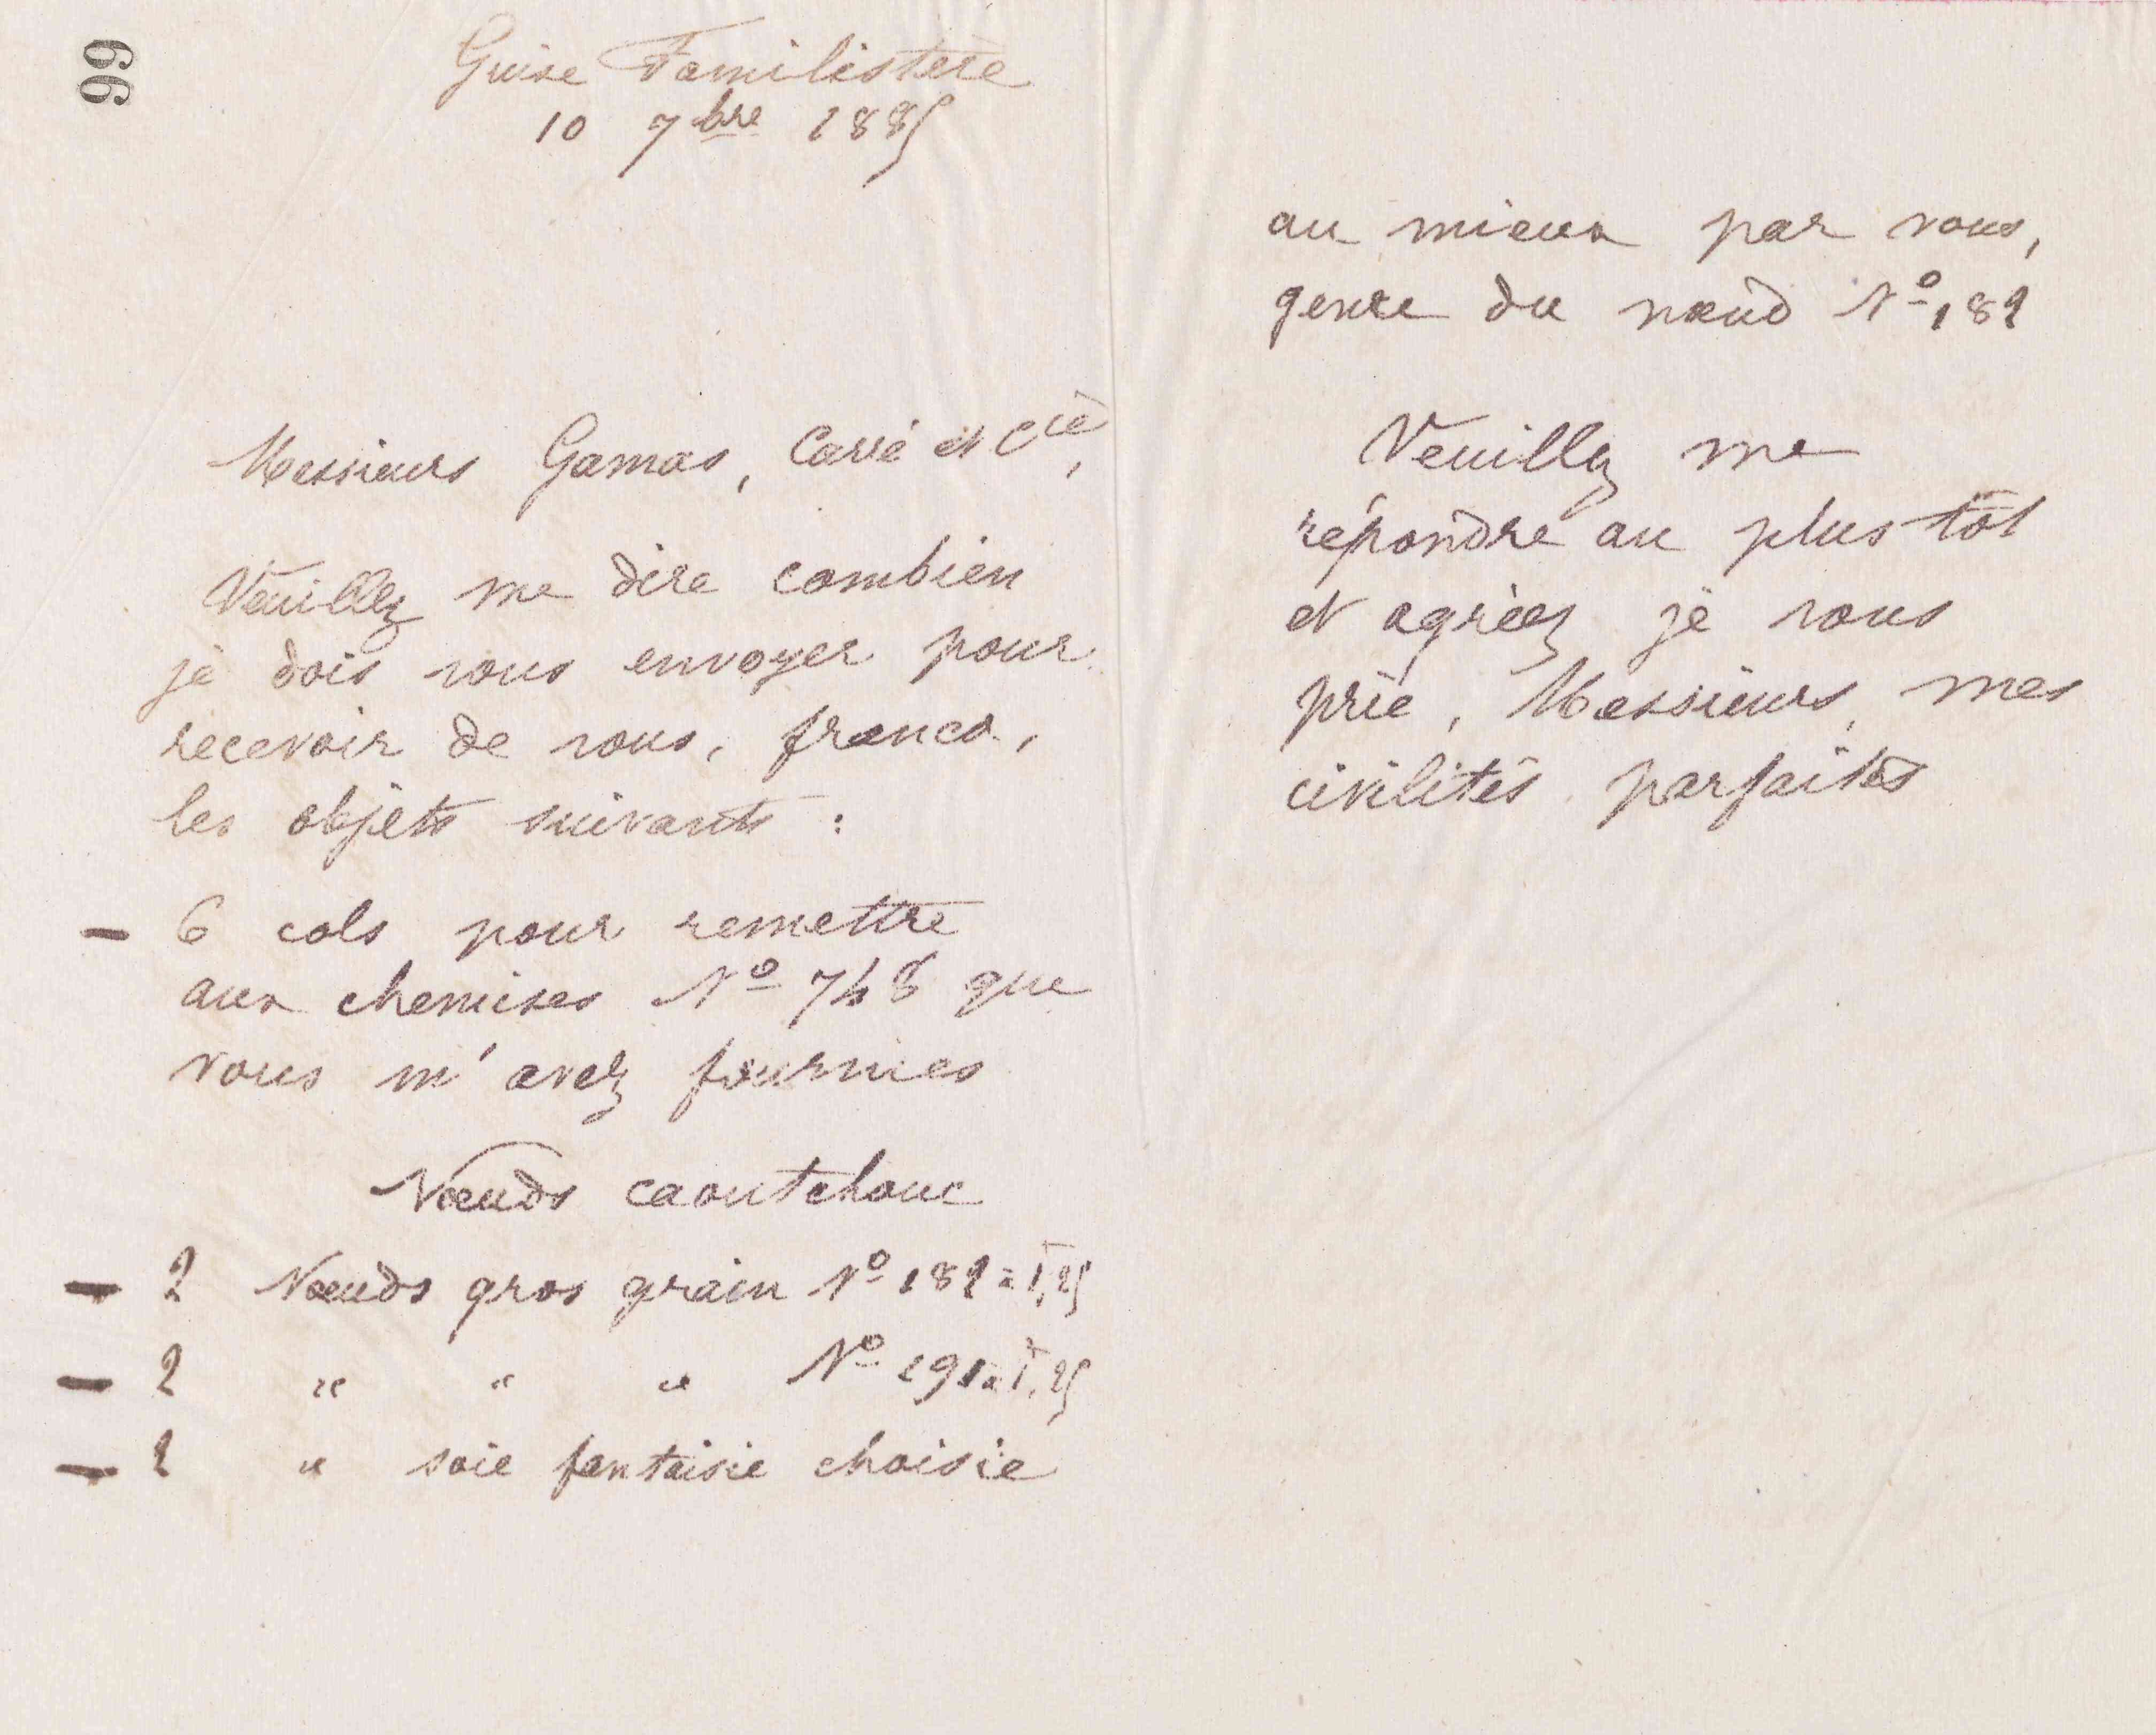 99
Guise Familistère
10 7bre 1885
Messieurs Gamas, Carré et Cie,
Veuillez me dire combien
je dois vous envoyer pour
recevoir de vous, franco,
les objets suivants :
- 6 cols pour remettre
aux chemises No 748 que
vous m'avez fournies
Nœuds caoutchouc
- 2 Nœuds gros grain No 182 à 1f,25
- 2 " " " No 191 à 1f,25
- 2 " soie fantaisie choisie
au mieux par vous,
genre du nœud No 182
Veuillez me
répondre au plus tôt
et agréez je vous
prie, Messieurs, mes
civilités parfaites